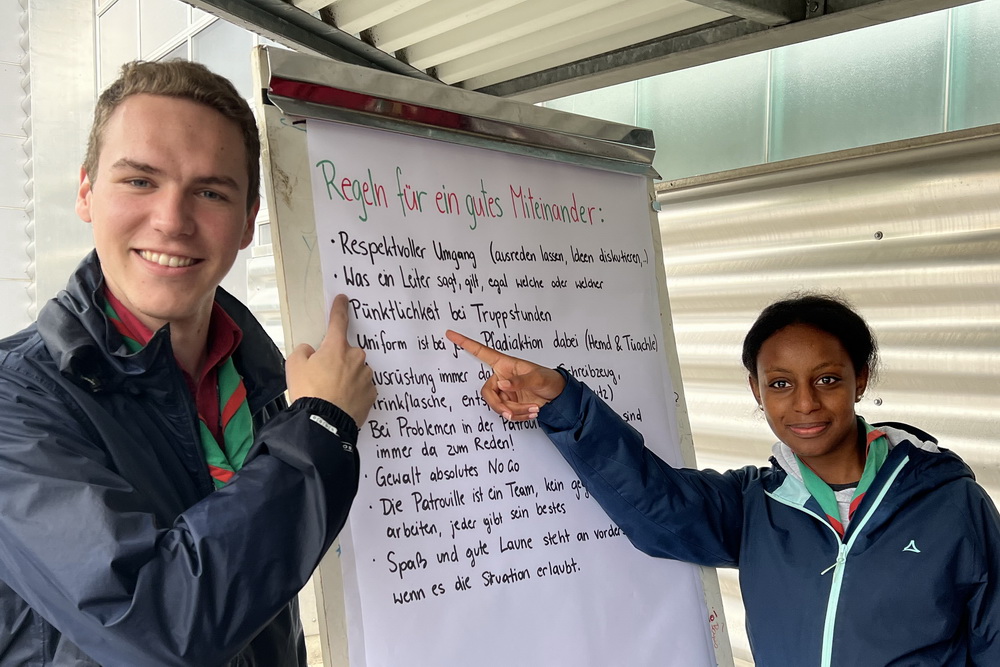 Regeln für ein gutes Miteinander:
· Respektvoller Umgang (ausreden lassen, Ideen diskutieren,..)
· Was ein Leiter sagt, gilt, egal welche oder welcher
Pünktlichkeit bei Truppstunden
Uniform ist bei Pfadiaktion dabei (Hemd & Tüachle)
Ausrüstung immer Schreibzeug,
Trinkflasche,
Bei Problemen in der sind
immer da zum Reden!
· Gewalt absolutes No Go
· Die Patrouille ist ein Team, kein
arbeiten, jeder gibt sein bestes
· Spaß und gute Laune steht an
wenn es die Situation erlaubt.